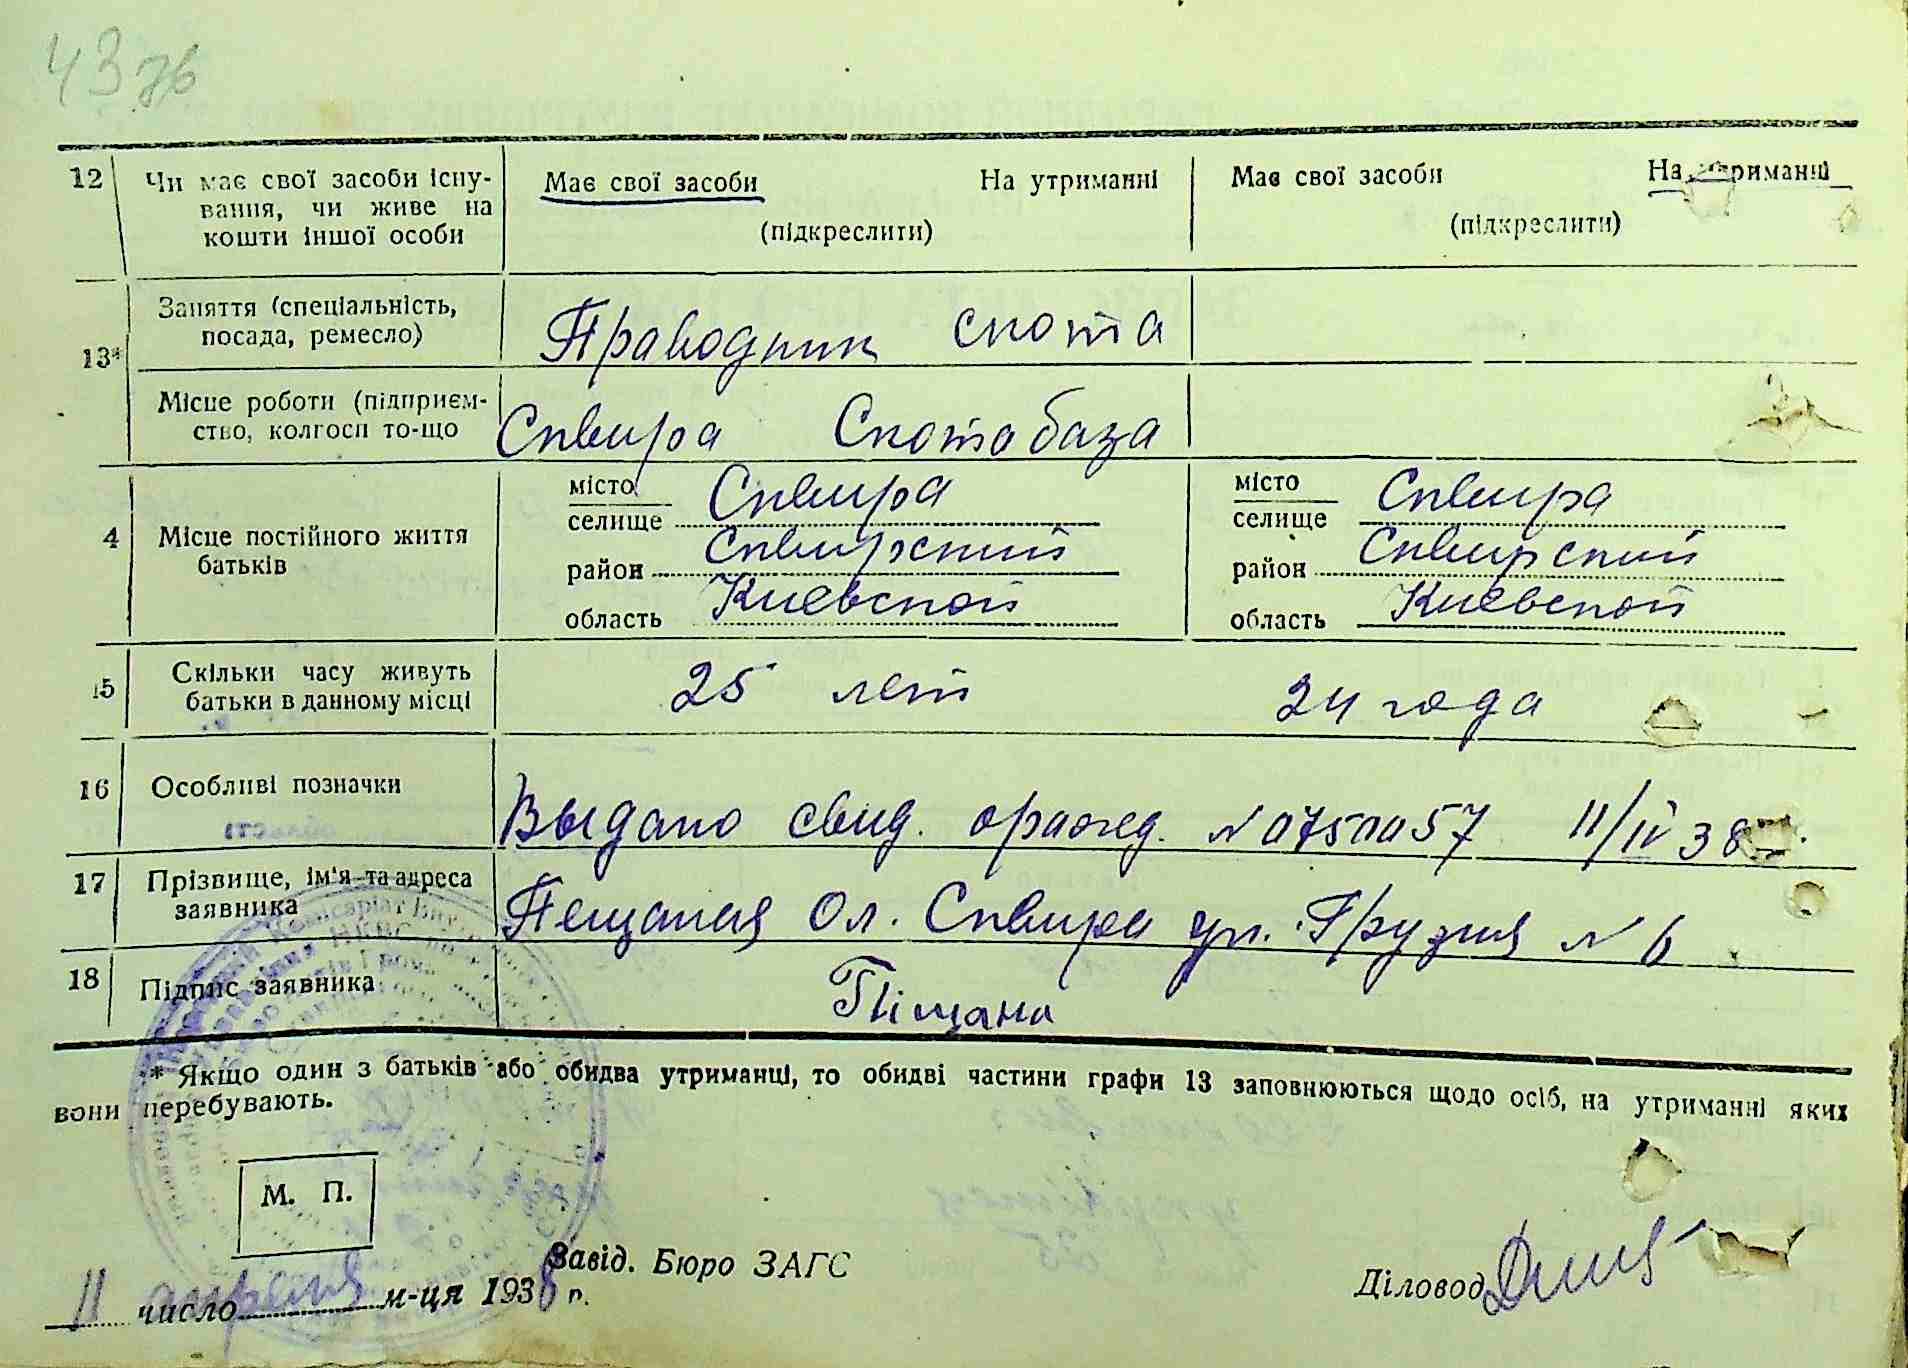 43 зв
12 Чи має свої засоби існу-
вання, чи живе на
кошти іншої особи
Має свої засоби На утриманні
(підкреслити)
Має свої засоби На утриманні
(підкреслити)
13* Заняття (спеціальність,
посада, ремесло)
Праводник скота
Місце роботи (підприєм-
ство, колгосп то-що
Сквира Скотабаза
4 Місце постійного життя
батьків
місто Сквира
селище
район Сквирский
область Киевской
місто Сквира
селище
район Сквирский
область Киевской
15 Скільки часу живуть
батьки в данному місці
25 лет 24 года
16 Особливі позначки
Выдано свид. оражед. N 0750057 11/IV 38
17 Прізвище, ім'я та адреса
заявника
Пещаная Ол. Сквира ул. Грузня N 6
18 Підпис заявника
Піщана
* Якщо один з батьків або обидва утриманці, то обидві частини графи 13 заповнюються щодо осіб, на утриманні яких
вони перебувають.
М. П.
Завід. Бюро ЗАГС
11 число апреля м-ця 1938 р.
Діловод